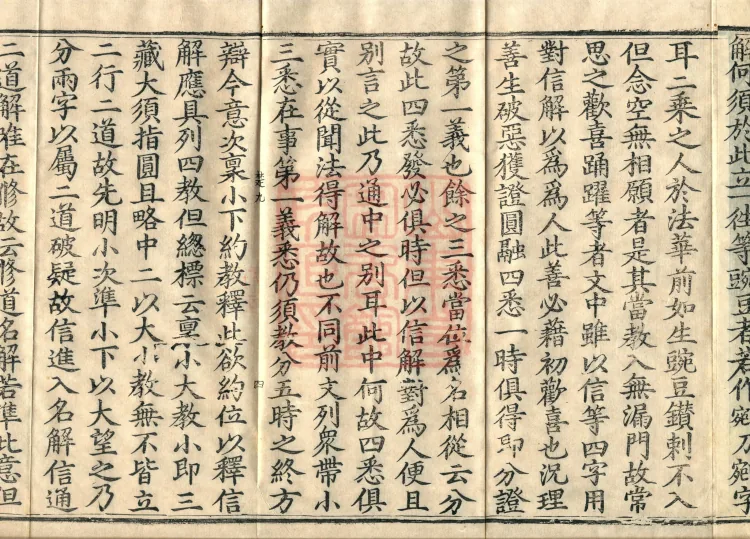 解何須於此立一徑等豌豆者若作宛乃宛字
耳二乘之人於法華前如生豌豆鑚刺不入
但念空無相願者是其當教入無漏門故常
思之歡喜踊躍等者文中雖以信等四字用
對信解以爲爲人此善必藉初歡喜也況理
善生破惡獲證圓融四悉一時俱得即分證
之第一義也餘之三悉當位爲名相從云分
故此四悉發必俱時但以信解對爲人便且
別言之此乃通中之別耳此中何故四悉俱
實以從聞法得解故也不同前文列衆帶小
三悉在事第一義悉仍須教分五時之終方
楚九 四
辯今意次稟小下約教釋此欲約位以釋信
解應具列四教但總標云稟小大教小即三
藏大須指圓且略中二以大小教無不皆立
二行二道故先明小次準小下以大望之乃
分兩字以屬二道破疑故信進入名解信通
二道解唯在修故云修道名解若準此意但